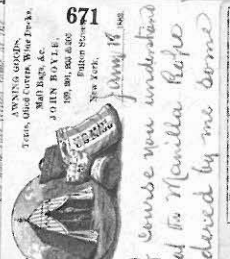 671
AWNING GOODS,
Tents, Oiled Covers, Wide Ducks,
Mail Bags, &c.
JOHN BOYLE,
199, 201, 203 & 205
Fulton Street
New York,
Jany 18
U.S. MAIL
course you understand
Manilla Rope
ordered by me